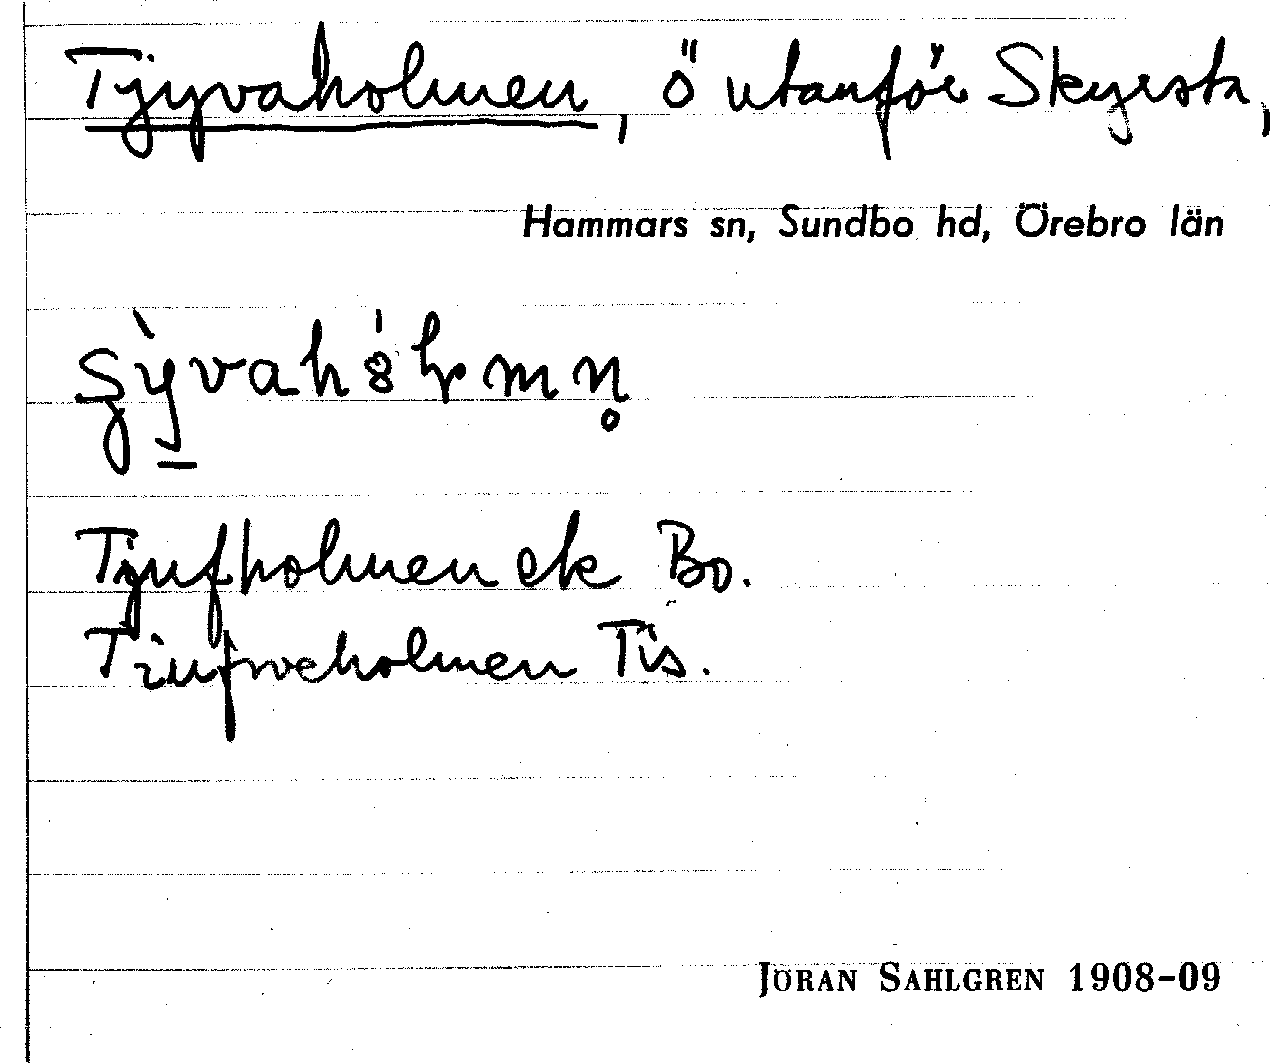 Tjyvaholmen, ö utanför Skyrsta,
Hammars sn, Sundbo hd, Örebro län
Tjufholmen ek Bo.
Tiufweholmen Tis.
JÖRAN SAHLGREN 1908-09